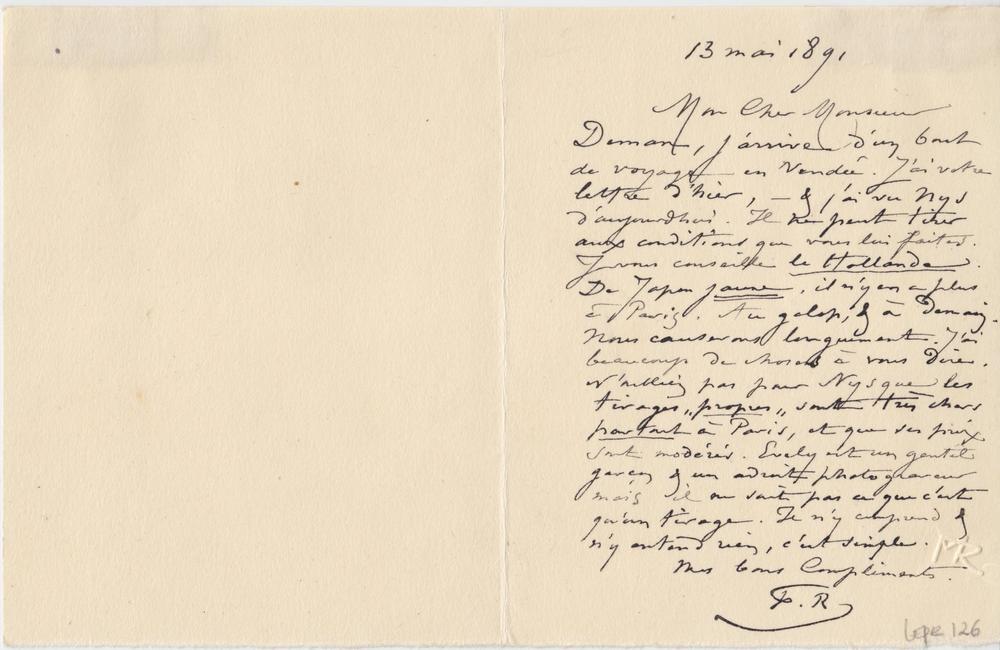 13 mai 1891
Mon Cher Monsieur
Deman, j'arrive d'un bout
de voyage en Vendée. J'ai votre
lettre d'hier, – & j'ai vu Nys
d'aujourdhui. Il ne peut tirer
aux conditions que vous lui faites.
Je vous conseille le Hollande.
De Japon jaune, il n'y en a plus
à Paris. Au galop, & à Demain.
Nous causerons longuement. J'ai
beaucoup de choses à vous Dire.
N'oubliez pas pour Nys que les
tirages „propres„ sont très chers
partout à Paris, et que ses prix
sont modérés. Evely est un gentil
garçon & un adroit photograveur
mais il ne sait pas ce que c'est
qu'un tirage. Il n'y comprend &
n'y entend rien, c'est simple.
Mes bons Compliments.
F. R